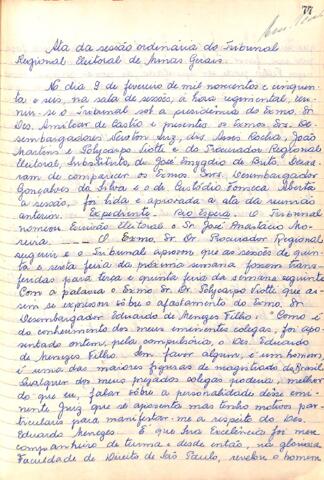 77
Ata da sessão ordinária do Tribunal
Regional Eleitoral de Minas Gerais.
No dia 9 de fevereiro de mil novecentos e cinquen-
ta e seis, na sala de sessões, à hora regimental, reu-
niu-se o Tribunal sob a presidência do Exmo. Sr.
Des. Amilcar de Castro e presentes os Exmos. Srs. De-
sembargadores Newton Luz, drs. Assis Rocha, João
Martins e Polycarpo Viotti e do Procurador Regional
Eleitoral, Substituto, dr. José Emygdio de Brito. Deixa-
ram de comparecer os Exmos. Srs. Desembargador
Gonçalves da Silva e o dr. Custódio Fonseca. Aberta
a sessão, foi lida e aprovada a ata da reunião
anterior. Expediente. Rio Espera. O Tribunal
nomeou Escrivão Eleitoral o Sr. José Anastácio Mo-
reira. O Exmo. Sr. Dr. Procurador Regional
sugeriu e o Tribunal aprovou que as sessões de quin-
ta e sexta feira da próxima semana fossem trans-
feridas para terça e quinta feira da semana seguinte.
Com a palavra o Exmo. Sr. Dr. Polycarpo Viotti que as-
sim se expressou sobre o afastamento do Exmo. Sr.
Desembargador Eduardo de Menezes Filho: "Como é
do conhecimento dos meus eminentes colegas, foi apo-
sentado ontem, pela compulsória, o Des. Eduardo
de Menezes Filho. Sem favor algum, é um homem,
é uma das maiores figuras de magistrado do Brasil.
Qualquer dos meus prezados colegas poderia, melhor
do que eu, falar sobre a personalidade desse emi-
nente Juiz que se aposenta mas tenho motivos par-
ticulares para manifestar-me a respeito do Des.
Eduardo Menezes. É que Sua Excelência foi meu
companheiro de turma e desde então, na gloriosa
Faculdade de Direito de São Paulo, revelou o homem